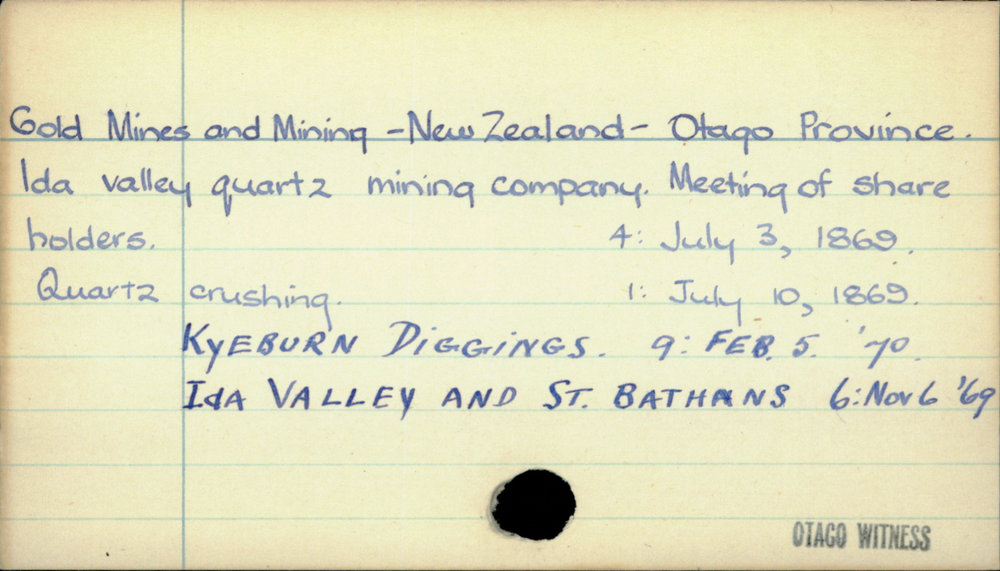 Gold Mines and Mining - New Zealand - Otago Province.
Ida valley quartz mining company. Meeting of share
holders. 4: July 3, 1869.
Quartz crushing. 1: July 10, 1869.
KYEBURN DIGGINGS. 9: FEB. 5. '70.
IdA VALLEY AND ST. BATHANS 6: Nov 6 '69
OTAGO WITNESS